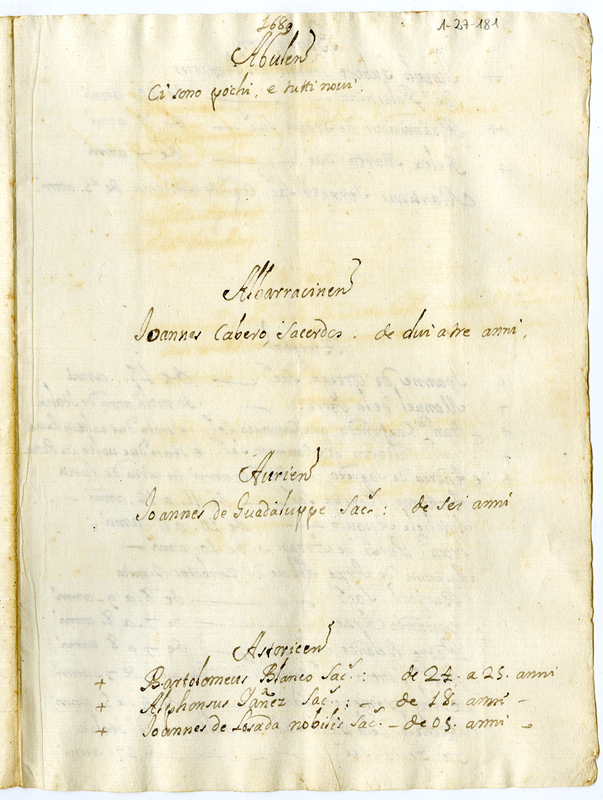 1689
1-27-181
Abulen
Ci sono pochi, e tutti novi.
Albarracinen
Joannes Cabero, Sacerdos. de dui a tre anni.
Aurien
Joannes de Guadaluppe Sacs: de sei anni
Astoricen
+ Bartolomeus Blanco Sacs: de 24. a 25. anni
+ Alphonsus Yañez Sacs: – de 18. anni –
+ Joannes de Losada nobilis Sac. – de 05. anni –